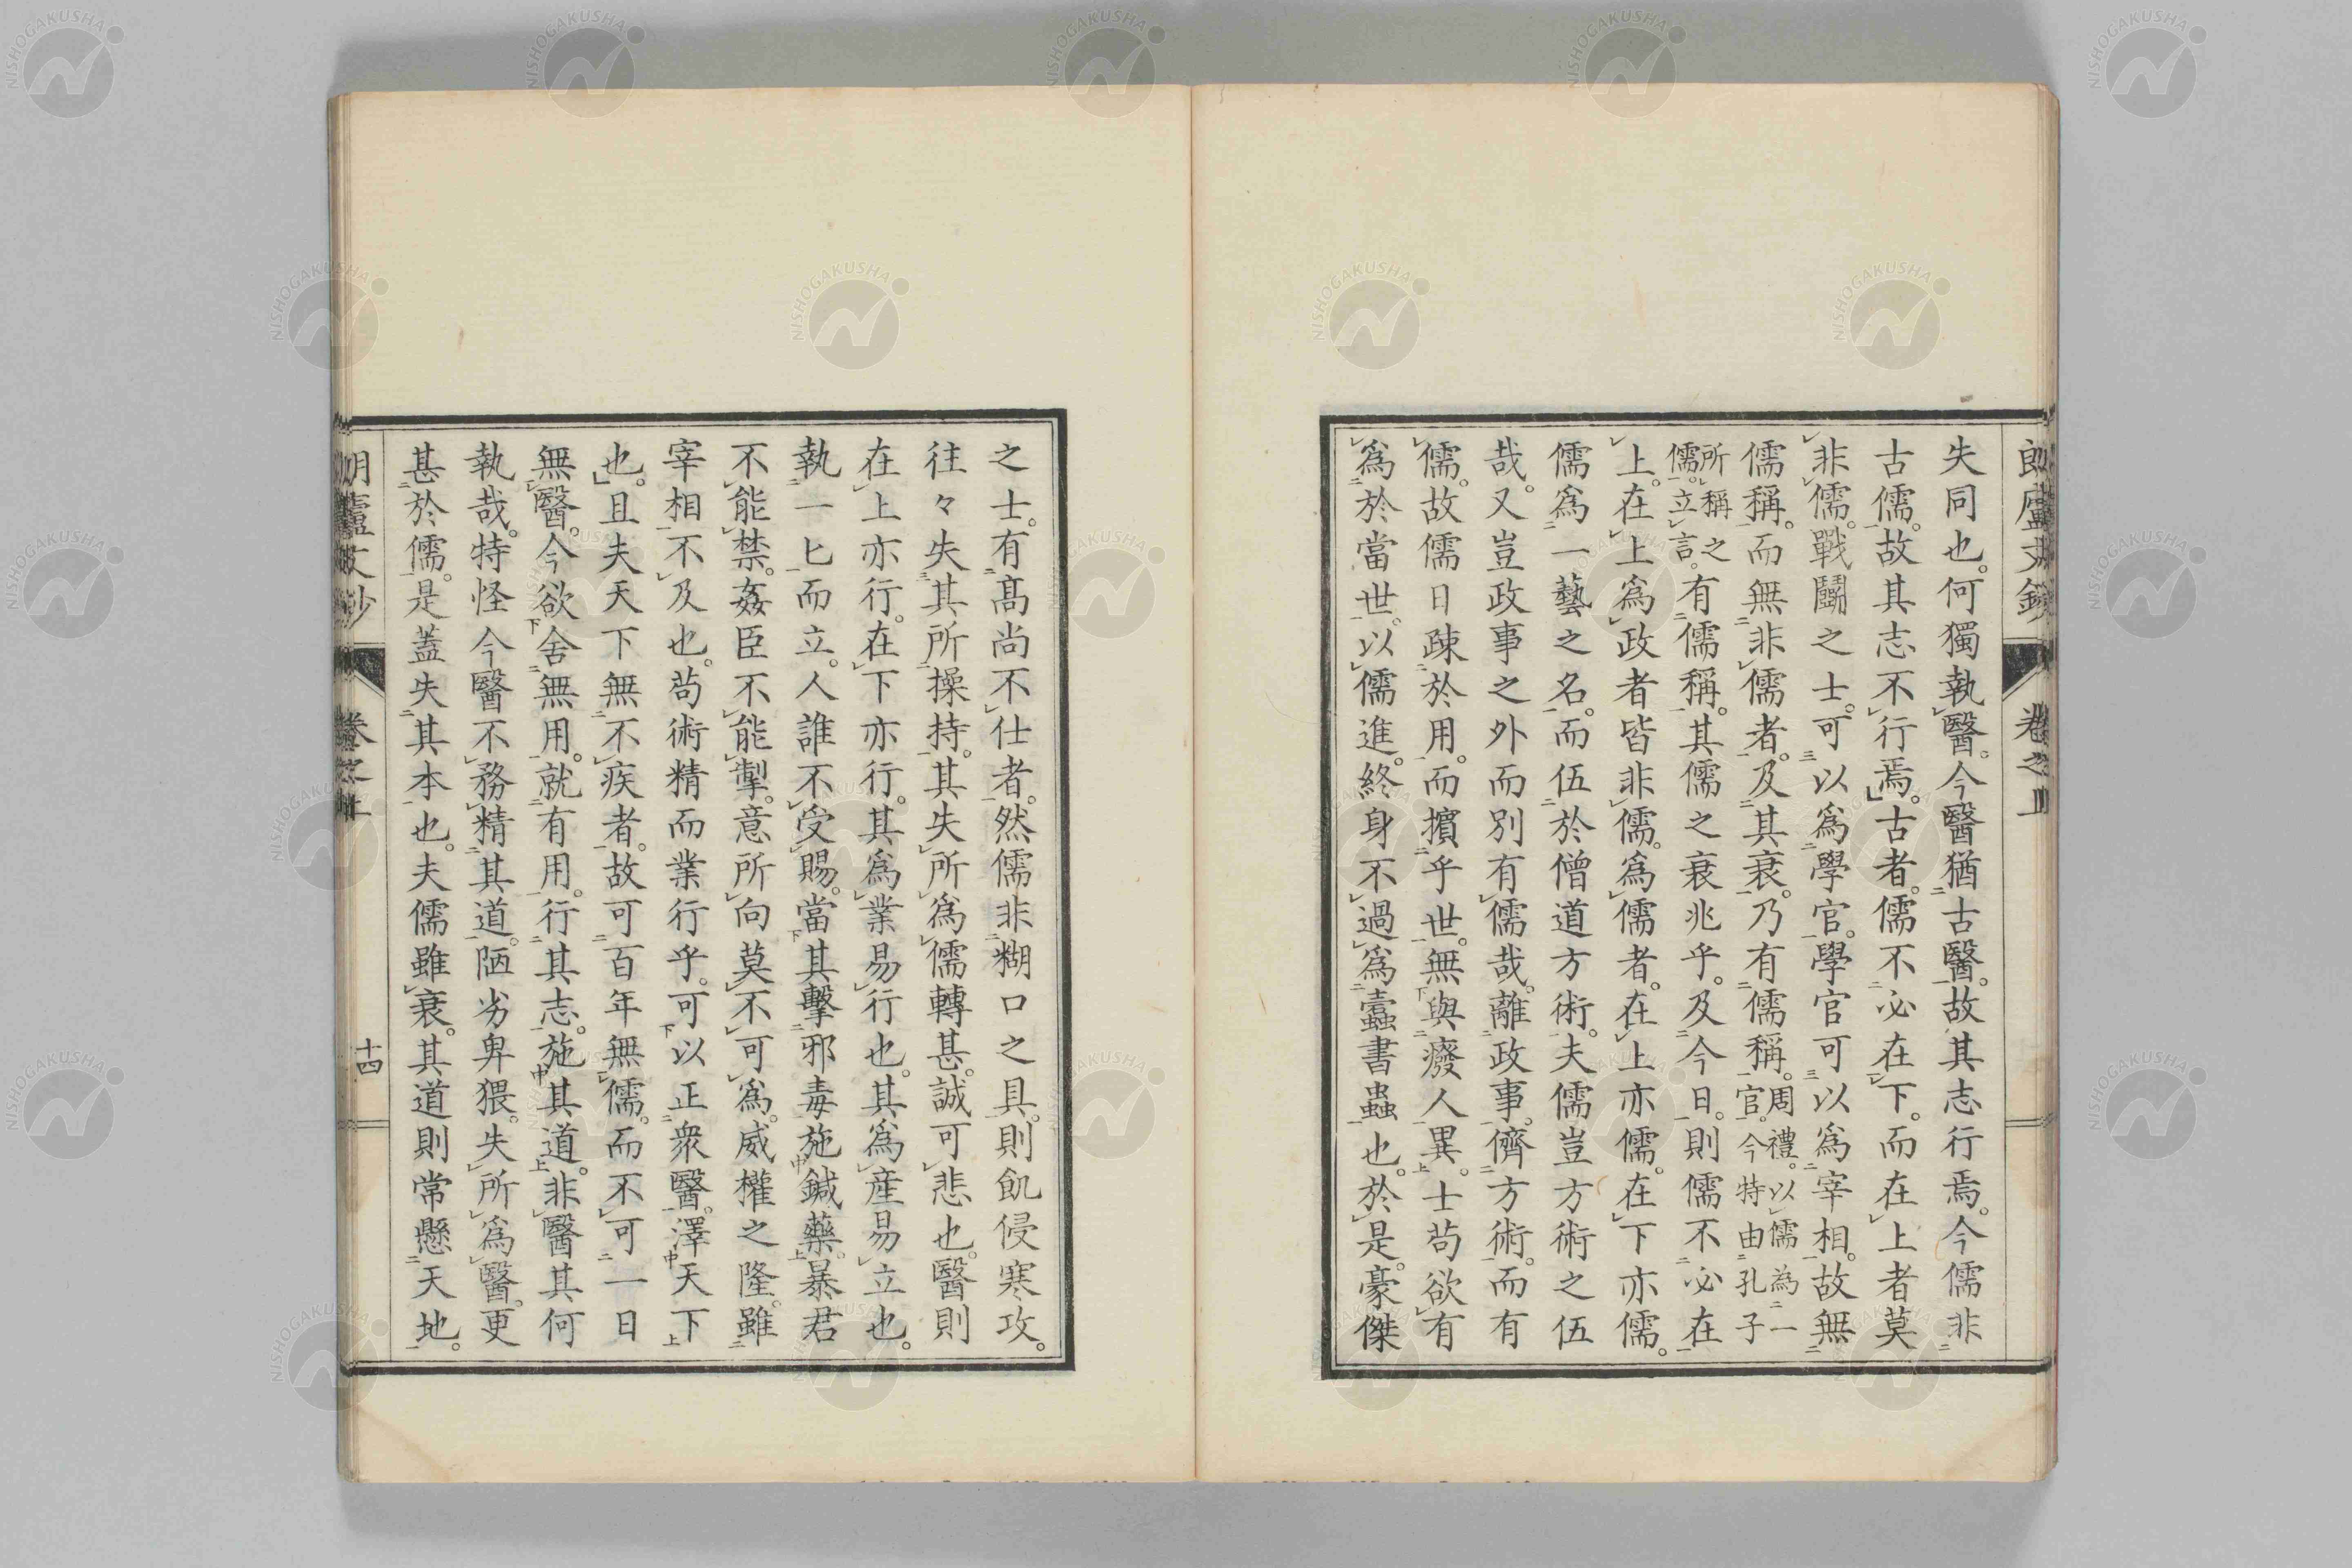 失同也。何獨執醫。今醫猶古醫。故其志行焉。今儒非
古儒。故其志不行焉。」古者。儒不必在下。而在上者莫
非儒。戰鬭之士。可以爲學官。學官可以爲宰相。故無
儒稱。而無非儒者。及其衰。乃有儒稱。周禮。以儒為一官。今特由孔子
所稱之儒。立言。有儒稱。其儒之衰兆乎。及今日。則儒不必在
上。在上爲政者皆非儒。爲儒者。在上亦儒。在下亦儒。
儒爲一藝之名。而伍於僧道方術。夫儒豈方術之伍
哉。又豈政事之外而別有儒哉。離政事。儕方術。而有
儒。故儒日疎於用。而擯乎世。無與癈人異。士苟欲有
爲於當世。以儒進。終身不過爲蠹書蟲也。於是。豪傑
之士。有高尚不仕者。然儒非糊口之具。則飢侵寒攻。
往々失其所操持。其失所爲儒轉甚。誠可悲也。醫則
在上亦行。在下亦行。其爲業易行也。其爲産易立也。
執一匕而立。人誰不受賜。當其擊邪毒施鍼藥。暴君
不能禁。姦臣不能掣。意所向莫不可爲。威權之隆。雖
宰相不及也。苟術精而業行乎。可以正衆醫。澤天下
也。」且夫天下無不疾者。故可百年無儒。而不可一日
無醫。今欲舍無用。就有用。行其志。施其道。非醫其何
執哉。特怪今醫不務精其道。陋劣卑猥。失所爲醫。更
甚於儒。是蓋失其本也。夫儒雖衰。其道則常懸天地。
十四
NISHOGAKUSHA